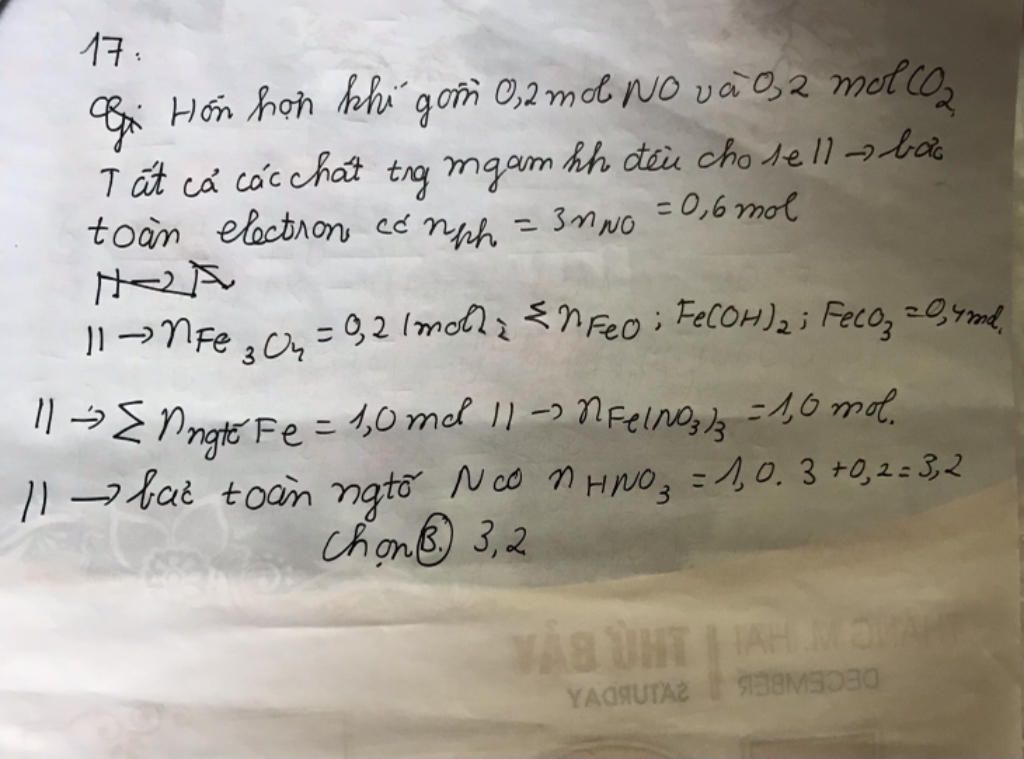 17:
Gi: Hỗn hợp khí gồm 0,2 mol NO và 0,2 mol CO2
Tất cả các chất tng m gam hh đều cho 1e // → bảo
toàn electron có nhh = 3nNO = 0,6 mol
// → nFe3O4 = 0,2 (mol); Σ nFeO; Fe(OH)2; FeCO3 = 0,4 mol.
// → Σ nngtố Fe = 1,0 mol // → nFe(NO3)3 = 1,0 mol.
// → bảo toàn ngtố N có nHNO3 = 1,0. 3 + 0,2 = 3,2
Chọn B. 3,2
THÁNG M. HAI | THỨ BẢY
DECEMBER SATURDAY